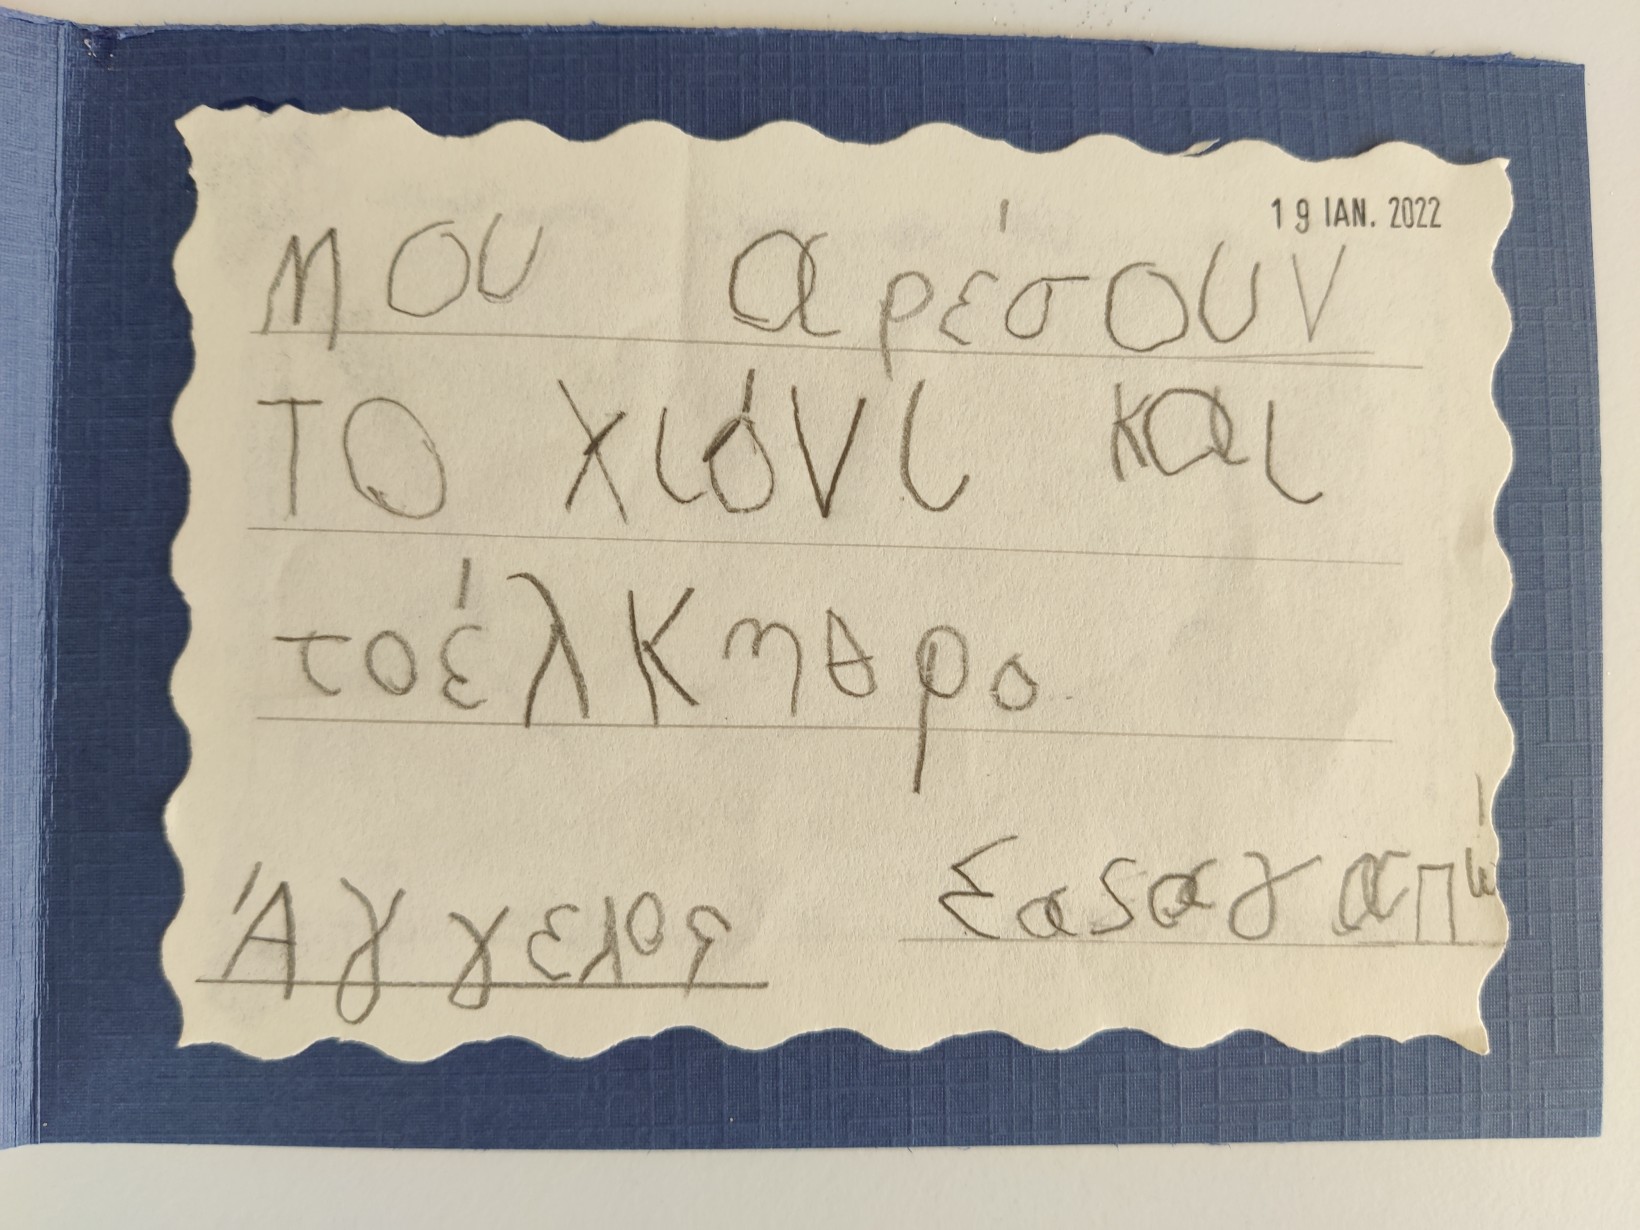 19 ΙΑΝ. 2022
Μου αρέσουν
το χιόνι και
τοέλκηθρο
Άγγελος
Σαςαγαπώ